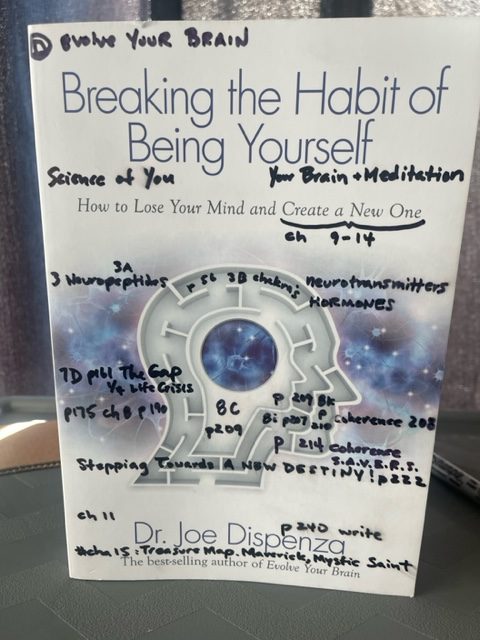 D EVOLVE YOUR BRAIN
Breaking the Habit of
Being Yourself
Science of You
Your Brain + Meditation
How to Lose Your Mind and Create a New One
ch 9-14
3A
3 Neuropeptides
p 56 3B chakras
neurotransmitters
HORMONES
7D p161 The Gap
1/4 Life Crisis
p175 ch 8 p 190
8C
p209
p 209 8k
8i p207 p 210
Coherence 208
p 214 coherence
S.A.V.E.R.S.
Stepping Towards A NEW DESTINY! p222
ch 11
p240 write
Dr. Joe Dispenza
15: Treasure Map. Maverick, Mystic Saint
The best-selling author of Evolve Your Brain